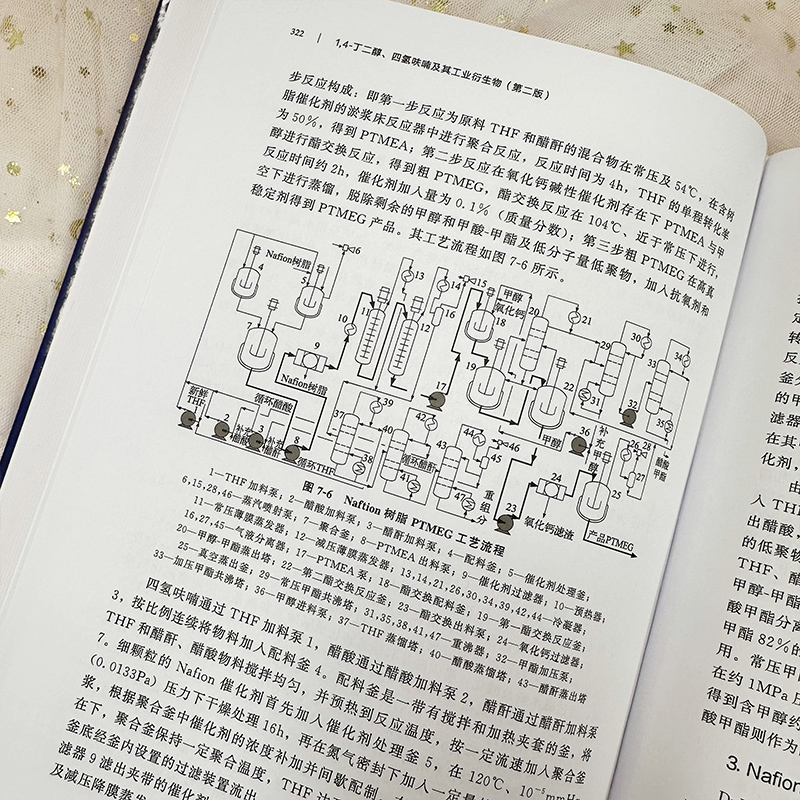 322 | 1,4-丁二醇、四氢呋喃及其工业衍生物（第二版）
步反应构成：即第一步反应为原料 THF 和醋酐的混合物在常压及 54℃，在含树
脂催化剂的淤浆床反应器中进行聚合反应，反应时间为 4h，THF 的单程转化率
为 50%，得到 PTMEA；第二步反应在氧化钙碱性催化剂存在下 PTMEA 与甲
醇进行酯交换反应，得到粗 PTMEG，酯交换反应在 104℃、近于常压下进行，
反应时间约 2h，催化剂加入量为 0.1%（质量分数）；第三步粗 PTMEG 在高真
空下进行蒸馏，脱除剩余的甲醇和甲酸-甲酯及低分子量低聚物，加入抗氧剂和
稳定剂得到 PTMEG 产品。其工艺流程如图 7-6 所示。
Nafion树脂
4
5
6
7
9
Nafion树脂
10
11
12
13
14
15
16
17
甲醇
氧化钙
18
19
20
21
22
29
30
31
32
33
34
35
新鲜
THF
2
补充
醋酸
3
补充
醋酐
8
循环醋酸
循环THF
37
38
39
40
循环醋酐
41
42
43
44
45
46
47
重
组
分
23
24
氧化钙滤渣
甲醇
36
补
充
甲
醇
25
26
27
28
醋酸
甲酯
产品PTMEG
图 7-6 Naftion 树脂 PTMEG 工艺流程
1—THF 加料泵；2—醋酸加料泵；3—醋酐加料泵；4—配料釜；5—催化剂处理釜；
6,15,28,46—蒸汽喷射泵；7—聚合釜；8—PTMEA 出料泵；9—催化剂过滤器；10—预热器；
11—常压薄膜蒸发器；12—减压薄膜蒸发器；13,14,21,26,30,34,39,42,44—冷凝器；
16,27,45—气液分离器；17—PTMEA 泵；18—酯交换配料釜；19—第一酯交换反应釜；
20—甲醇-甲酯蒸出塔；22—第二酯交换反应釜；23—酯交换出料泵；24—氧化钙过滤器；
25—真空蒸出釜；29—常压甲酯共沸塔；31,35,38,41,47—重沸器；32—甲酯加压泵；
33—加压甲酯共沸塔；36—甲醇进料泵；37—THF 蒸馏塔；40—醋酸蒸馏塔；43—醋酐蒸出塔
四氢呋喃通过 THF 加料泵 1，醋酸通过醋酸加料泵 2，醋酐通过醋酐加料泵
3，按比例连续将物料加入配料釜 4。配料釜是一带有搅拌和加热夹套的釜，将
THF 和醋酐、醋酸物料搅拌均匀，并预热到反应温度，按一定流速加入聚合釜
7。细颗粒的 Nafion 催化剂首先加入催化剂处理釜 5，在 120℃、10⁻⁵mmHg
（0.0133Pa）压力下干燥处理 16h，再在氮气密封下加入一定量
浆，根据聚合釜中催化剂的浓度补加并间歇配制。
在下，聚合釜保持一定聚合温度，THF
釜底经釜内设置的过滤装置流出
滤器 9 滤出夹带的催化剂
及减压降膜蒸发
定
转
反
釜
的甲
滤器
在其
化剂，
由
人 THF
出醋酸，
的低聚物
THF、醋
甲醇-甲酯
酸甲酯分离
甲酯 82%的
用。常压甲
在约 1MPa 压
得到含甲醇约
酸甲酯则作为
3. Nafion